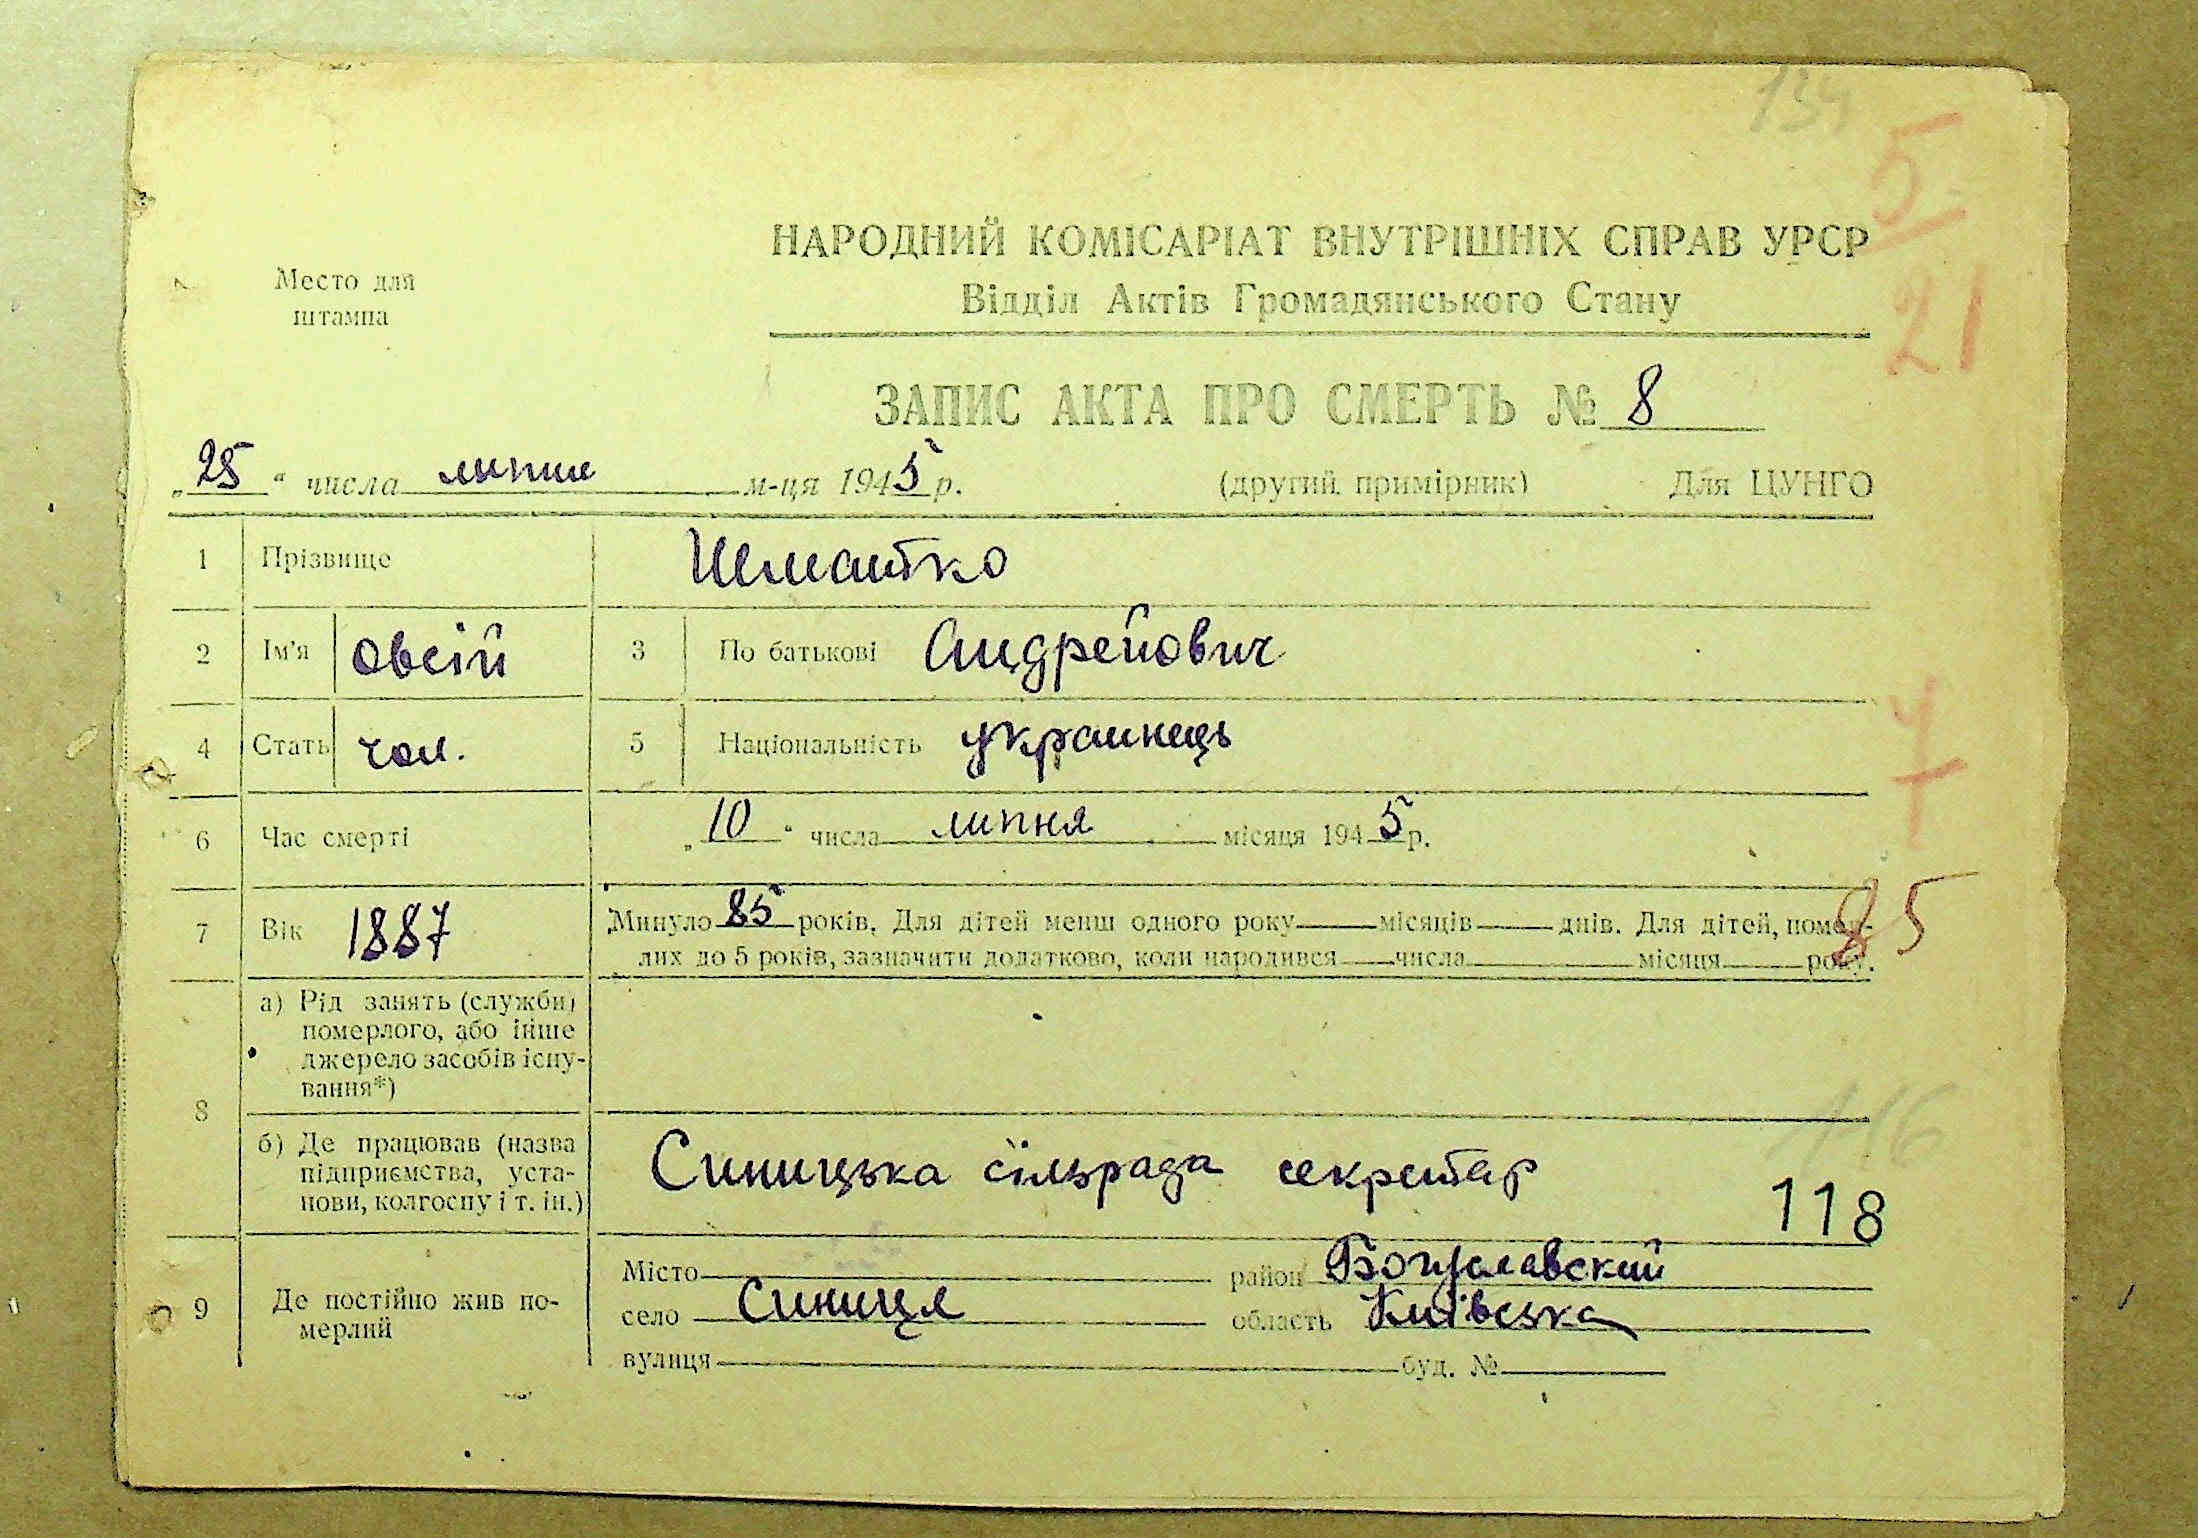 134
5
21
Место для
штампа
НАРОДНИЙ КОМІСАРІАТ ВНУТРІШНІХ СПРАВ УРСР
Відділ Актів Громадянського Стану
ЗАПИС АКТА ПРО СМЕРТЬ № 8
„25“ числа липня м-ця 1945 р. (другий примірник) Для ЦУНГО
1 Прізвище Шматко
2 Ім'я Овсій 3 По батькові Андрейович
4 Стать чол. 5 Національність украинець
6 Час смерті „10“ числа липня місяця 1945 р.
7 Вік 1887 Минуло 85 років. Для дітей менш одного року місяців днів. Для дітей, помер-
лих до 5 років, зазначити додатково, коли народився числа місяця року.
85
8 а) Рід занять (служби)
померлого, або інше
джерело засобів існу-
вання*)
116
б) Де працював (назва
підприємства, уста-
нови, колгоспу і т. ін.)
Синицька сільрада секретар
118
9 Де постійно жив по-
мерлий
Місто район Богуславский
село Синиця область Київська
вулиця буд. №